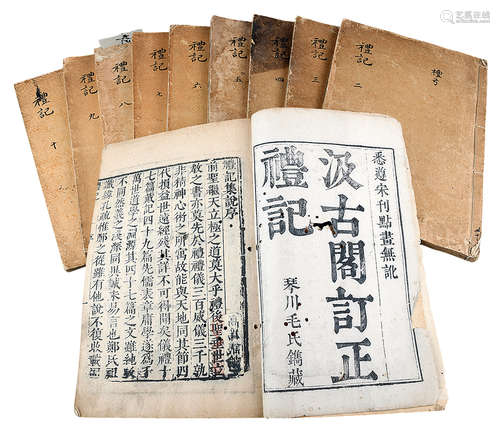 艺典拍卖
www.yidianchina.com
禮記 二 檀弓
禮記 三
禮記 四
禮記 五
禮記 六
禮記 七
禮記 八
禮記 九
禮記 十
悉遵宋刊點畫無訛
汲古閣訂正
禮記
琴川毛氏鐫藏
禮記集說序
前聖繼天立極之道莫大乎禮後聖垂世立
敎之書亦莫先於禮禮儀三百威儀三千孰
非精神心術之所寓故能與天地同其節四
代損益世遠經殘其詳不可得聞矣儀禮十
七篇戴記四十九篇先儒表章庸學遂爲千
萬世道學之淵源其四十七篇之文雖純
不同然義之淺深同異誠未易言也鄭氏祖
讖緯孔疏惟鄭之從雖有他說不復收載